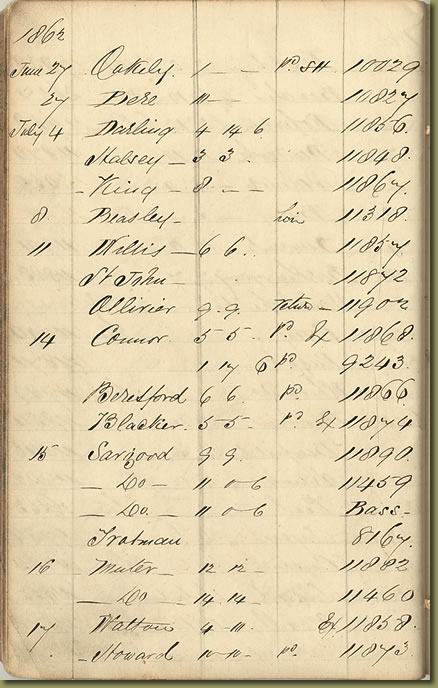 1862
June 27 Oakely. 1 — — pd SH 10029
27 Bere 11 — — 10827
July 4 Darling 4 14 6 11856.
Halsey — 3 3. 11848.
— King — 8 — — 11867.
8. Beasley — 11318.
11 Willis — 6 6. 11857.
St John — 11872
Ollivier 9. 9. return — 11902
14 Connor. 5 5. pd Ex 11868.
1 17 6 pd 9243.
Beresford 6 6. pd. 11866
Blacker. 5 5. pd Ex 11874
15 Sargood 9 9. 11890
— Do — 11 0 6 11459
— Do. — 11 0 6 Bass —
Trotman 8167.
16 — Muter — 12 12 — 11882
— Do — 14 14 — 11460
17 Watton 4 — 11. Ex 11858.
— Howard 10 — 10 — pd. 11873.